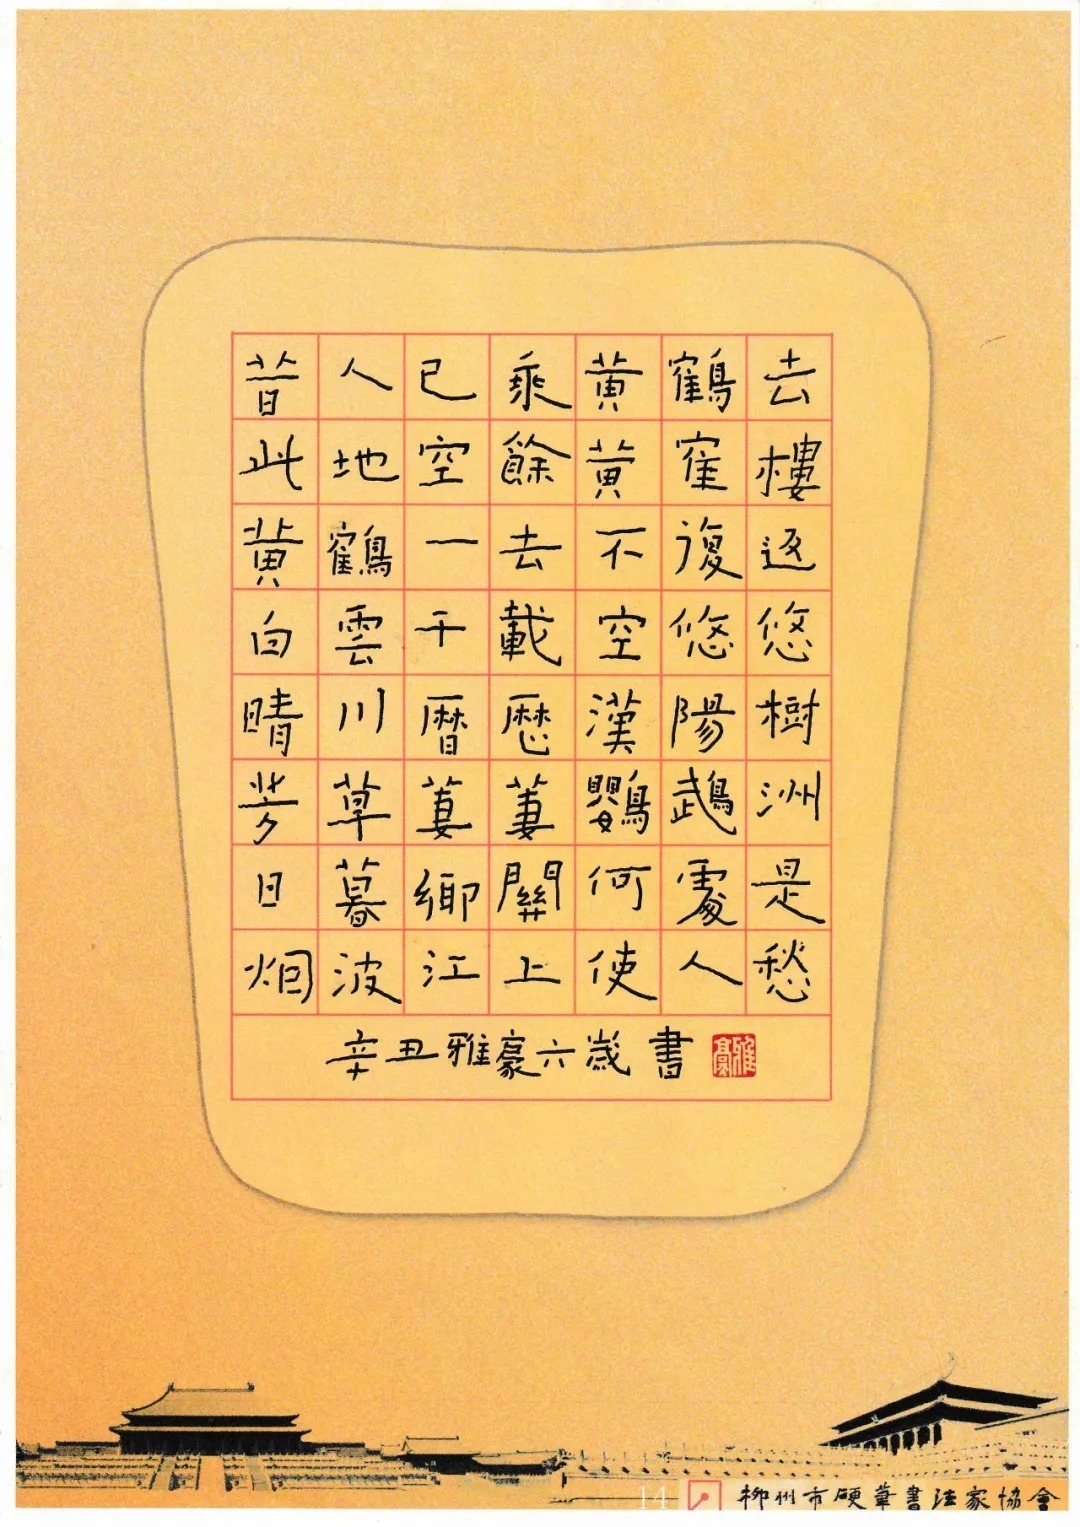 昔人已乘黃鶴去
此地空餘黃崔樓
黃鶴一去不復返
白雲千載空悠悠
晴川曆歷漢陽樹
芳草萋萋鸚鵡洲
日暮鄉關何處是
烟波江上使人愁
辛丑雅豪六歲書
雅豪
14
柳州市硬筆書法家協會